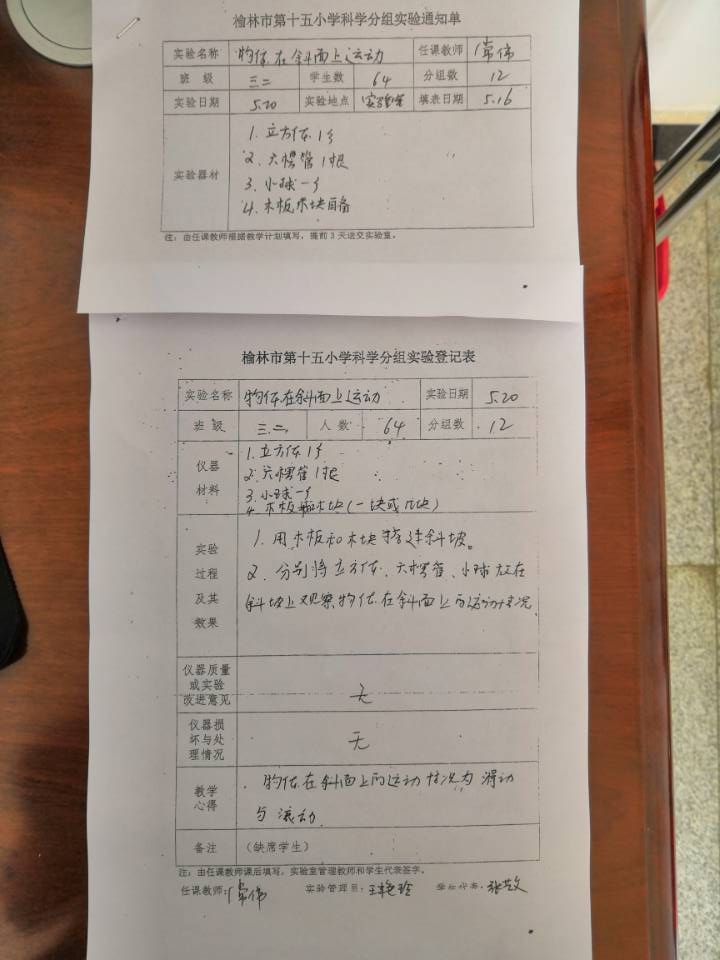 榆林市第十五小学科学分组实验通知单
实验名称 物体在斜面上运动 任课教师 常伟
班 级 三二 学生数 64 分组数 12
实验日期 5.20 实验地点 实验室 填表日期 5.16
实验器材
1. 立方体1个
2. 六棱管1根
3. 小球一个
4. 木板木块自备
注：由任课教师根据教学计划填写，提前3天送交实验室。
榆林市第十五小学科学分组实验登记表
实验名称 物体在斜面上运动 实验日期 5.20
班 级 三.二 人 数 64 分组数 12
仪器
材料
1.立方体1个
2.六棱管1根
3.小球一个
4.木板和木块(一块或几块)
实验
过程
及其
效果
1. 用木板和木块搭建斜坡。
2. 分别将立方体、六棱管、小球放在
斜坡上观察物体在斜面上的运动情况
仪器质量
或实验
改进意见
无
仪器损
坏与处
理情况
无
教学
心得
物体在斜面上的运动情况为滑动
与滚动
备注 （缺席学生）
注：由任课教师课后填写，实验室管理教师和学生代表签字。
任课教师：常伟 实验管理员：王艳玲 学生代表：张艺文